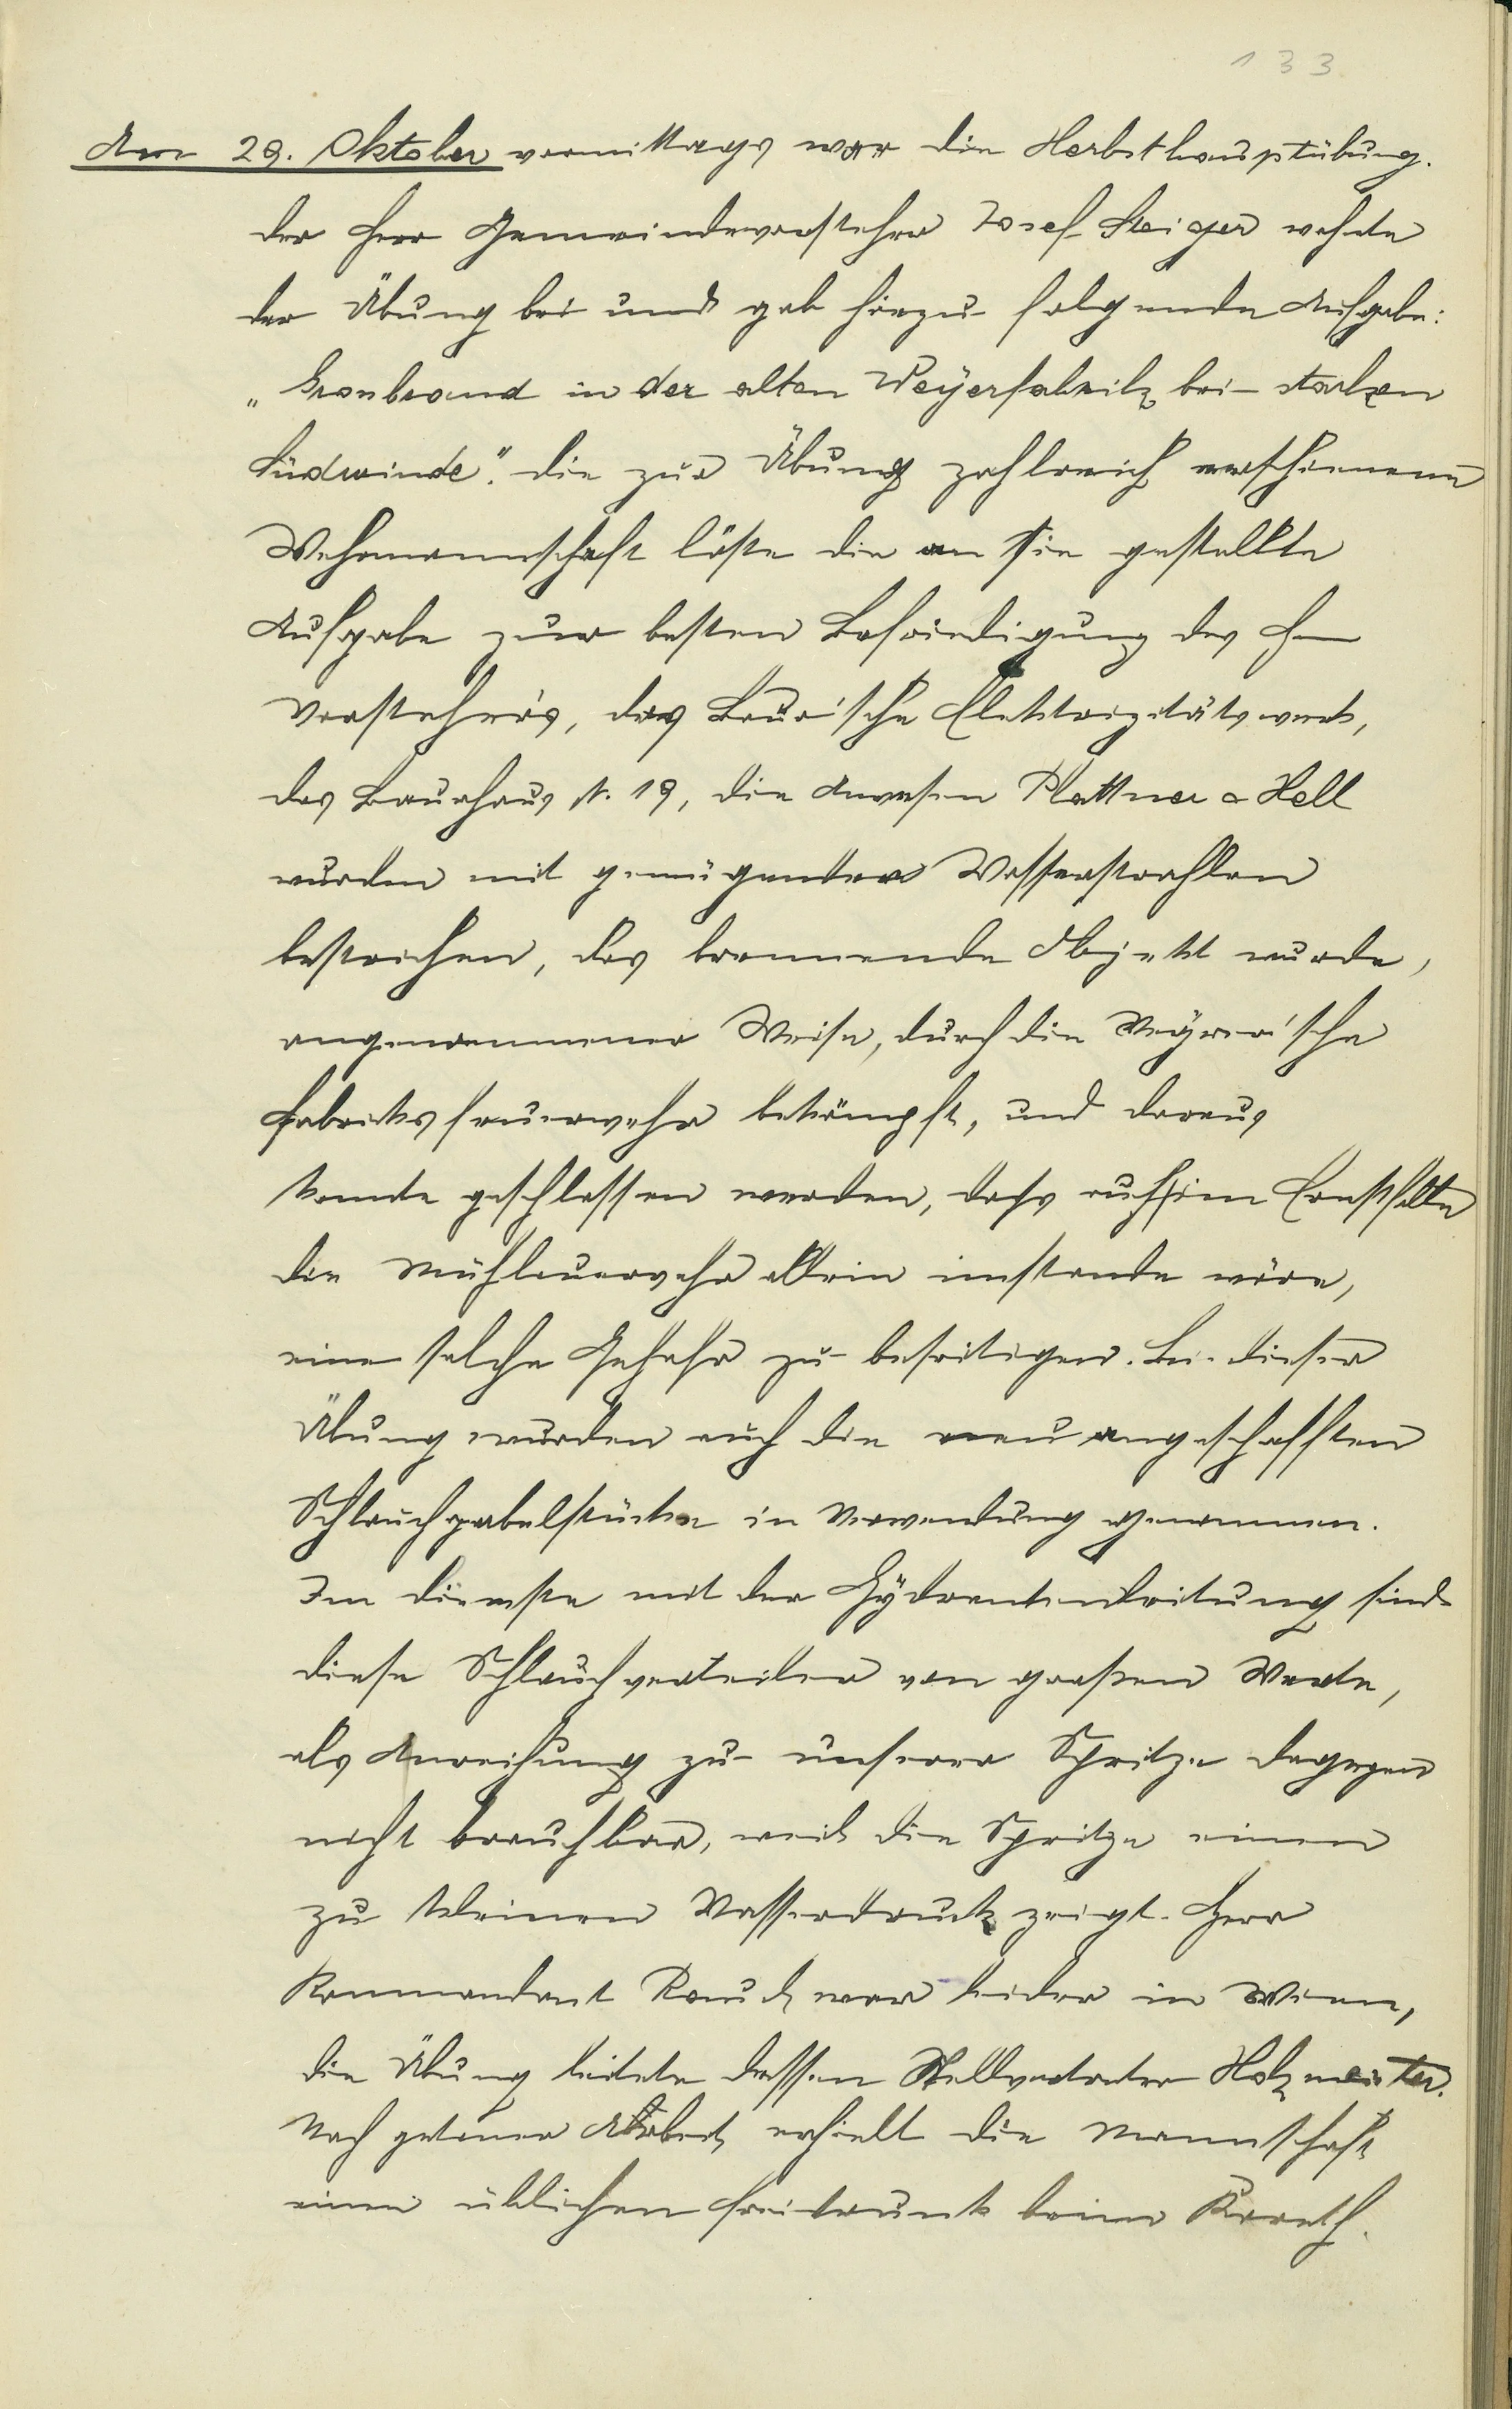 133
Am 29. Oktober vormittags war die Herbsthauptübung.
Der Herr Gemeindevorsteher Josef Steiger wohnte
der Übung bei und gab hiezu folgende Aufgabe:
„Großbrand in der alten Weyerfabrik bei starken
Südwinde". Die zur Übung zahlreich erschienene
Wehrmannschaft löste die an sie gestellte
Aufgabe zur besten Befriedigung des H
Vorsteher's, das Baur'sche Elektrizitätswerk,
das Bauhaus N. 19, die Anwesen Plattner & Hell
wurden mit genügenden Wasserstrahlen
bestrichen, das brennende Objekt wurde,
angenommener Weise, durch die Weyrer'sche
Fabriksfeuerwehr bekämpft, und daraus
konnte geschlossen werden, daß auch im Ernstfalle
die Mühlauerwehr allein imstande wäre,
eine solche Gefahr zu beseitigen. Bei dieser
Übung wurden auch die neu angeschafften
Schlauchgabelstücke in Verwendung genommen.
Im Dienste mit der Hydrantenleitung sind
diese Schlauchverteiler von großen Werte,
als Anreihung zu unserer Spritze dagegen
nicht brauchbar, weil die Spritze einen
zu kleinen Wasserdruck zeigt. Herr
Kommandant Rauch war leider in Wien,
die Übung leitete dessen Stellvertreter Holzmeister.
Nach getaner Arbeit erhielt die Mannschaft
einen üblichen Freitrunk beim Koreth.